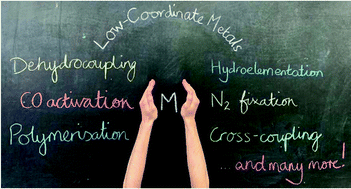 Low-Coordinate Metals
Dehydrocoupling
CO activation
Polymerisation
M
Hydroelementation
N₂ fixation
Cross-coupling
...and many more!